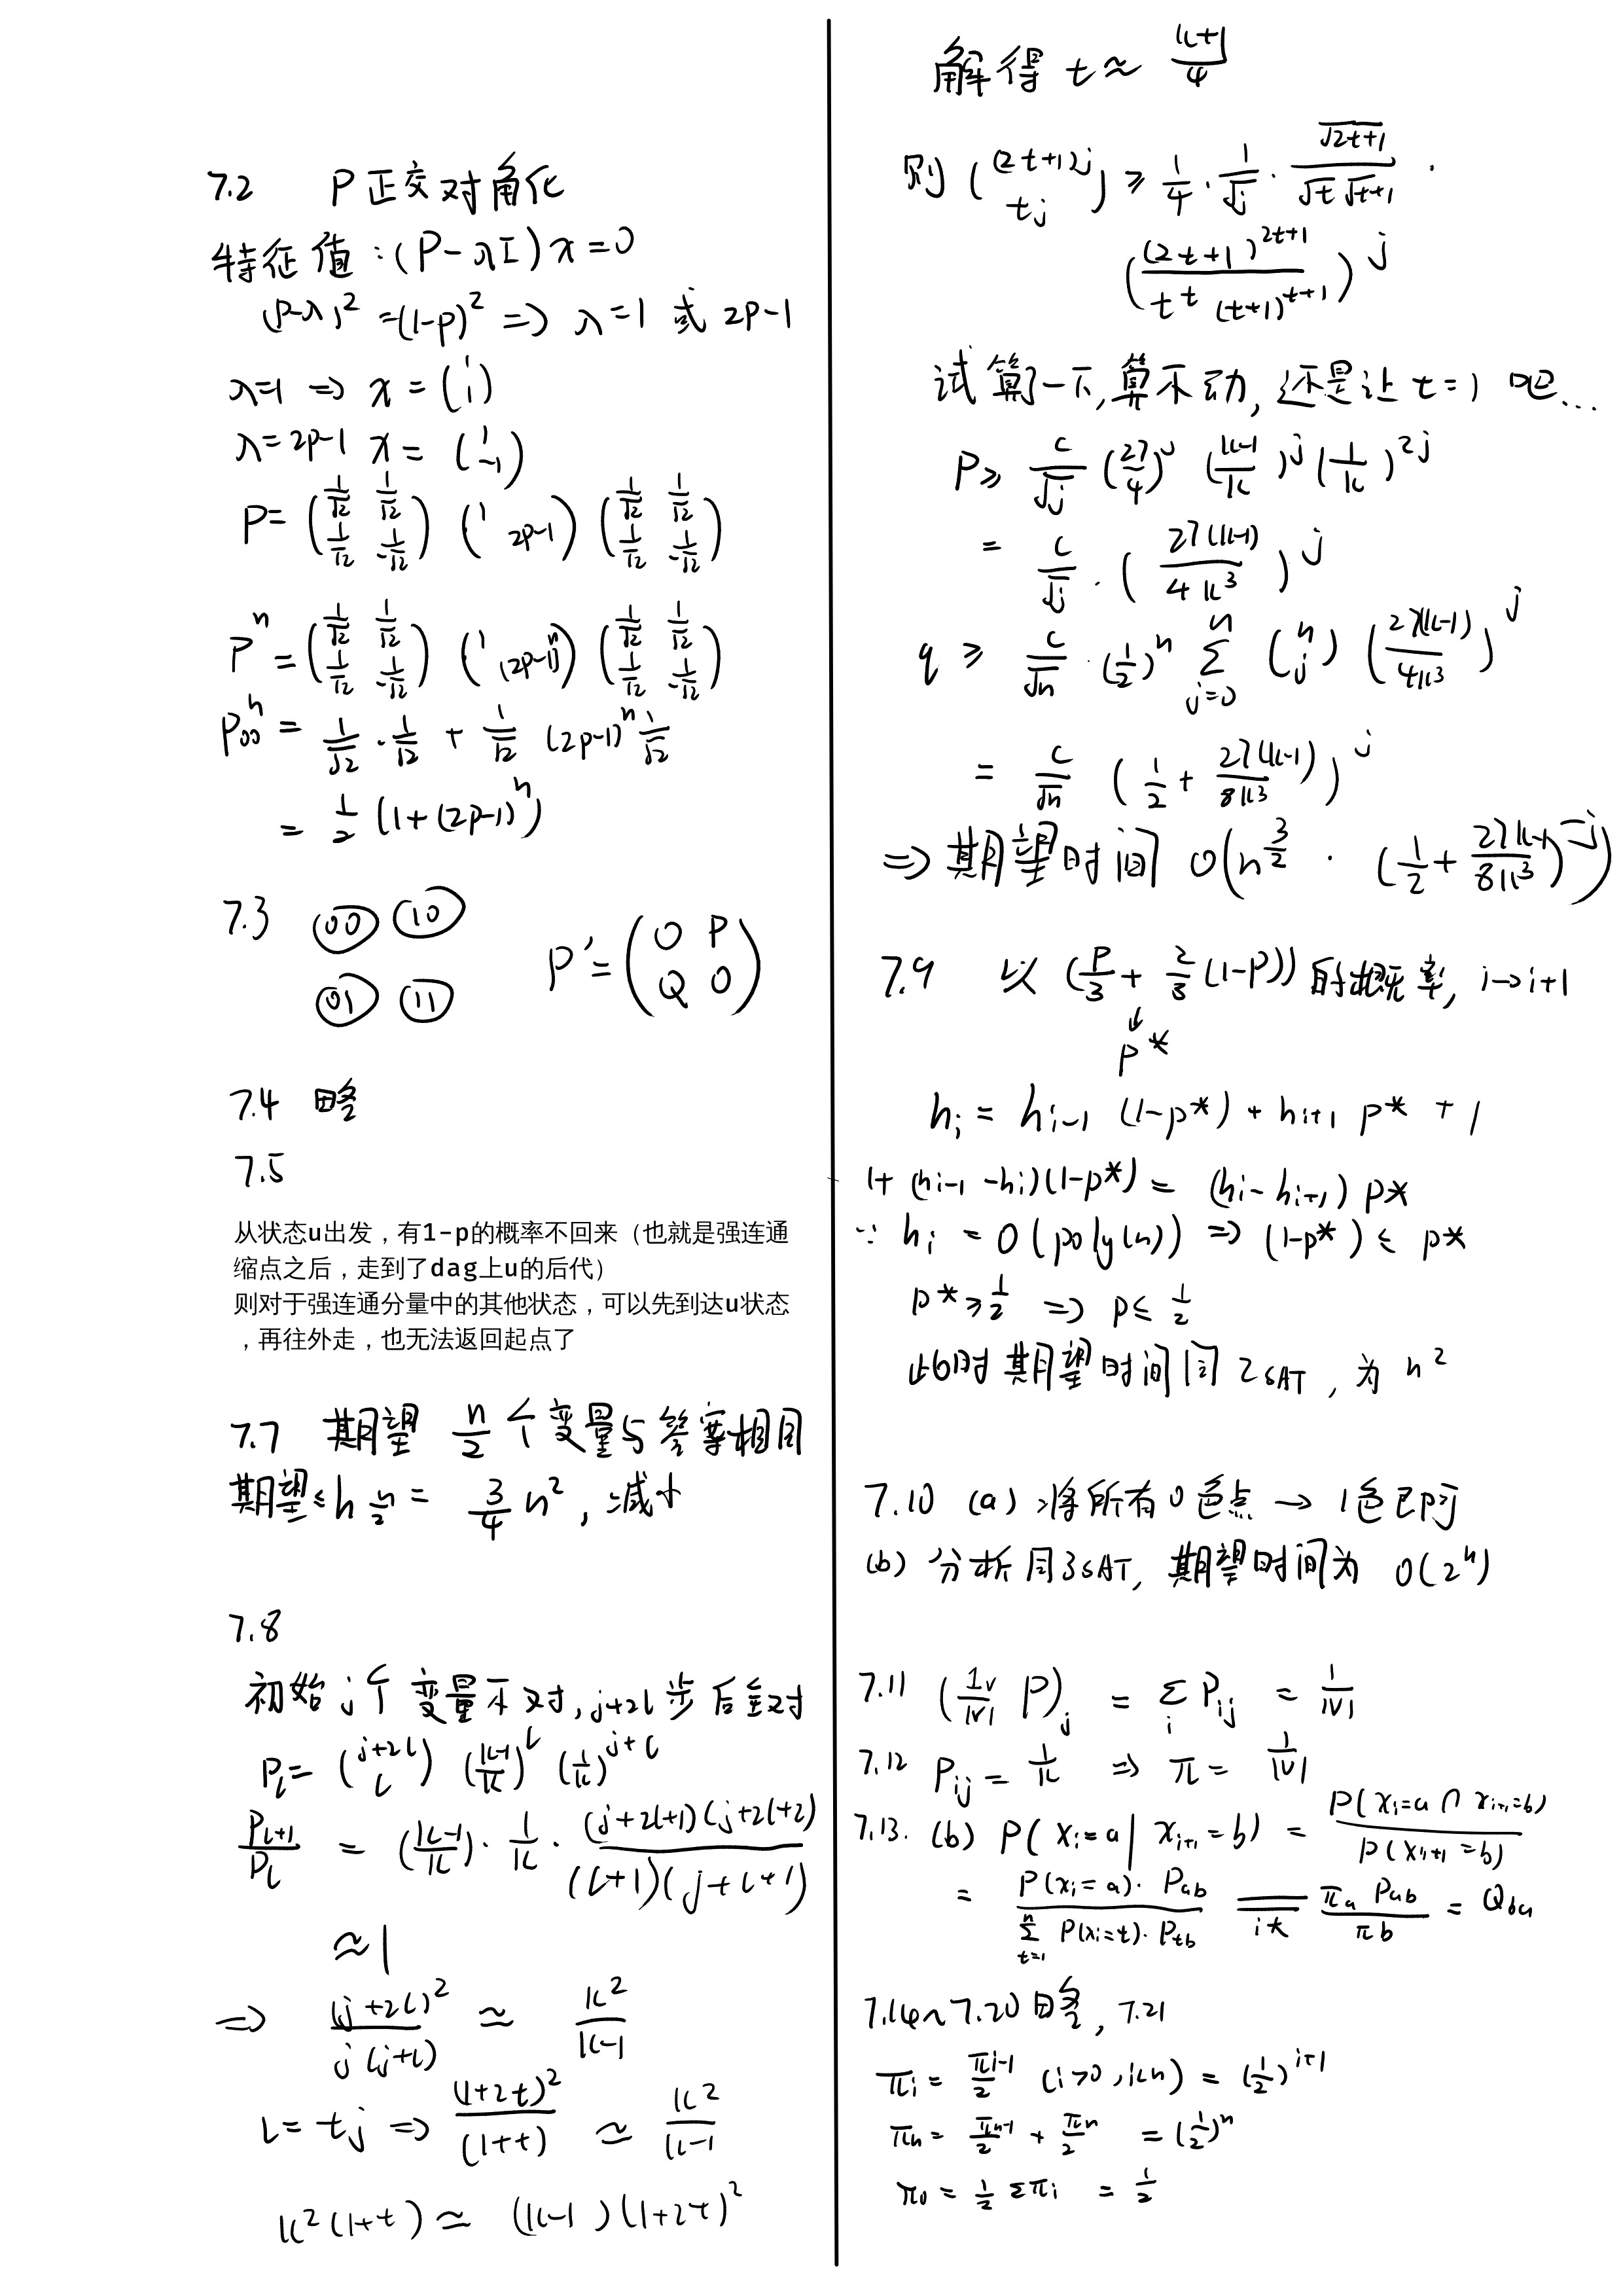 7.2 P正交对角化
特征值:(P-λI)x=0
(P-λ)²=(1-p)² => λ=1 或 2p-1
λ=1 => x=(1 1)
λ=2p-1 x=(1 -1)
P=(1/√2 1/√2 1/√2 -1/√2)(1 2p-1)(1/√2 1/√2 1/√2 -1/√2)
Pⁿ=(1/√2 1/√2 1/√2 -1/√2)(1 (2p-1)ⁿ)(1/√2 1/√2 1/√2 -1/√2)
P₀₀ⁿ = 1/√2·1/√2 + 1/√2 (2p-1)ⁿ 1/√2
= 1/2 (1+(2p-1)ⁿ)
7.3 00 10
01 11
P'=(O P Q O)
7.4 略
7.5
从状态u出发，有1-p的概率不回来（也就是强连通
缩点之后，走到了dag上u的后代）
则对于强连通分量中的其他状态，可以先到达u状态
，再往外走，也无法返回起点了
7.7 期望 n/2 个变量与答案相同
期望≤h_{n/2} = 3/4 n², 减小
7.8
初始 j个变量不对, j+2l步后全对
P_l=(j+2l l) ((k-1)/k)^l (1/k)^{j+l}
P_{l+1}/P_l = ((k-1)/k)·1/k·(j+2l+1)(j+2l+2)/((l+1)(j+l+1))
≈1
=> (j+2l)²/(j(j+l)) ≈ k²/(k-1)
l=tj => (1+2t)²/(1+t) ≈ k²/(k-1)
k²(1+t)≈(k-1)(1+2t)²
解得 t≈ (k+1)/4
则 ((2t+1)j tj) ≥ 1/4 · 1/√j · √(2t+1)/(√t √(t+1)) ·
((2t+1)^{2t+1}/(t^t (t+1)^{t+1}))^j
试算了一下,算不动,还是让 t=1 吧...
P≥ c/√j (27/4)^j ((k-1)/k)^j (1/k)^{2j}
= c/√j · (27(k-1)/4k³)^j
q ≥ c/√n · (1/2)ⁿ Σ_{j=0}^n (n j) (27(k-1)/4k³)^j
= c/√n (1/2 + 27(k-1)/8k³)^j
=> 期望时间 O(n^{3/2} · (1/2 + 27k-1/8k³)^{-j})
7.9 以 (p/3 + 2/3(1-p)) 的概率, i→i+1
↓
p*
h_i = h_{i-1} (1-p*) + h_{i+1} p* + 1
1+(h_{i-1} -h_i)(1-p*) = (h_i-h_{i+1}) p*
∵ h_i = O(poly(n)) => (1-p*) ≤ p*
p*≥1/2 => p≤ 1/2
此时期望时间同 2SAT, 为 n²
7.10 (a) 将所有0色点 → 1色即可
(b) 分析同3SAT, 期望时间为 O(2ⁿ)
7.11 (1_v/|V| P)_j = Σ_i P_ij = 1/|V|
7.12 P_ij = 1/k => π = 1/|V|
7.13. (b) P(X_i=a | X_{i+1}=b) = P(X_i=a ∩ X_{i+1}=b)/P(X_{i+1}=b)
= P(x_i=a)·P_ab/(Σ_{t=1}^n P(x_i=t)·P_tb) = it π_a P_ab/π_b = Q_ba
7.14~7.20 略, 7.21
π_i = π_{i-1}/2 (i>0, i<n) = (1/2)^{i+1}
π_n = π_{n-1}/2 + π_n/2 = (1/2)ⁿ
π_0 = 1/2 Σπ_i = 1/2